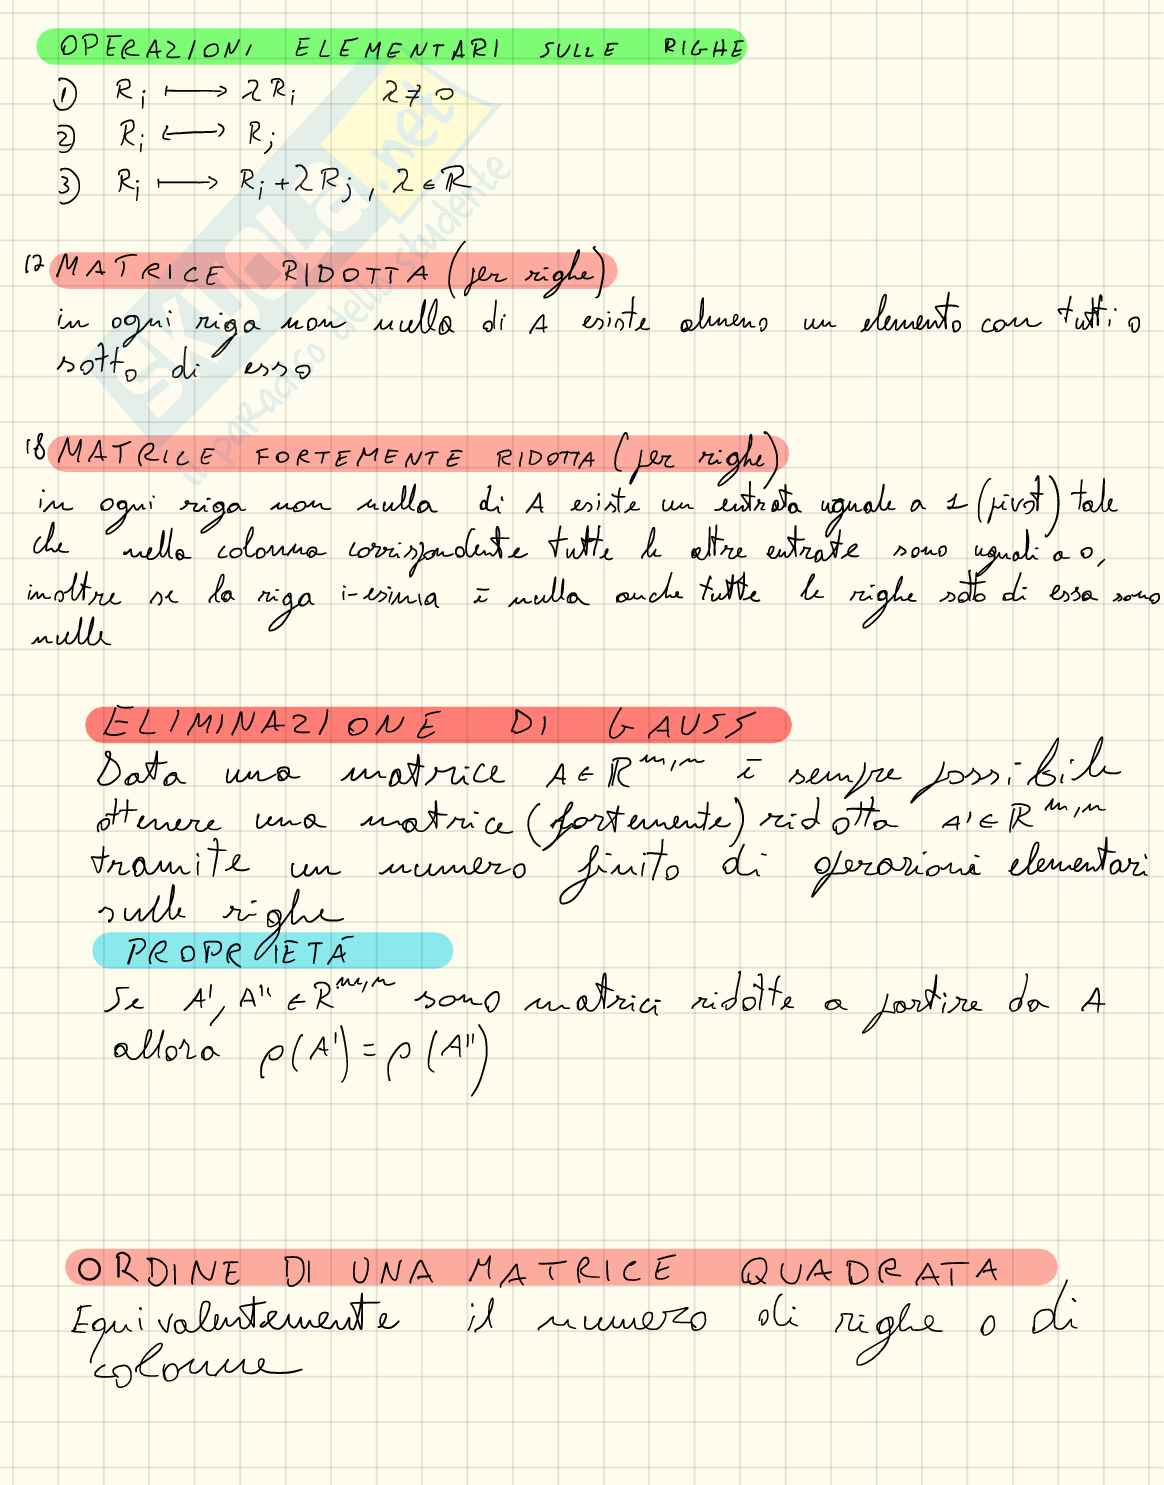 OPERAZIONI ELEMENTARI SULLE RIGHE
① Ri ⟼ λRi λ≠0
② Ri ⟷ Rj
③ Ri ⟼ Ri+λRj, λ∈ℝ
17 MATRICE RIDOTTA (per righe)
in ogni riga non nulla di A esiste almeno un elemento con tutti 0
sotto di esso
18 MATRICE FORTEMENTE RIDOTTA (per righe)
in ogni riga non nulla di A esiste un entrata uguale a 1 (pivot) tale
che nella colonna corrispondente tutte le altre entrate sono uguali a 0,
inoltre se la riga i-esima è nulla anche tutte le righe sotto di essa sono
nulle
ELIMINAZIONE DI GAUSS
Data una matrice A∈ℝ^m,n è sempre possibile
ottenere una matrice (fortemente) ridotta A'∈ℝ^m,n
tramite un numero finito di operazioni elementari
sulle righe
PROPRIETÀ
Se A', A''∈ℝ^m,n sono matrici ridotte a partire da A
allora ρ(A') = ρ(A'')
ORDINE DI UNA MATRICE QUADRATA
Equivalentemente il numero di righe o di
colonne
SKUOLA.net
il paradiso dello studente